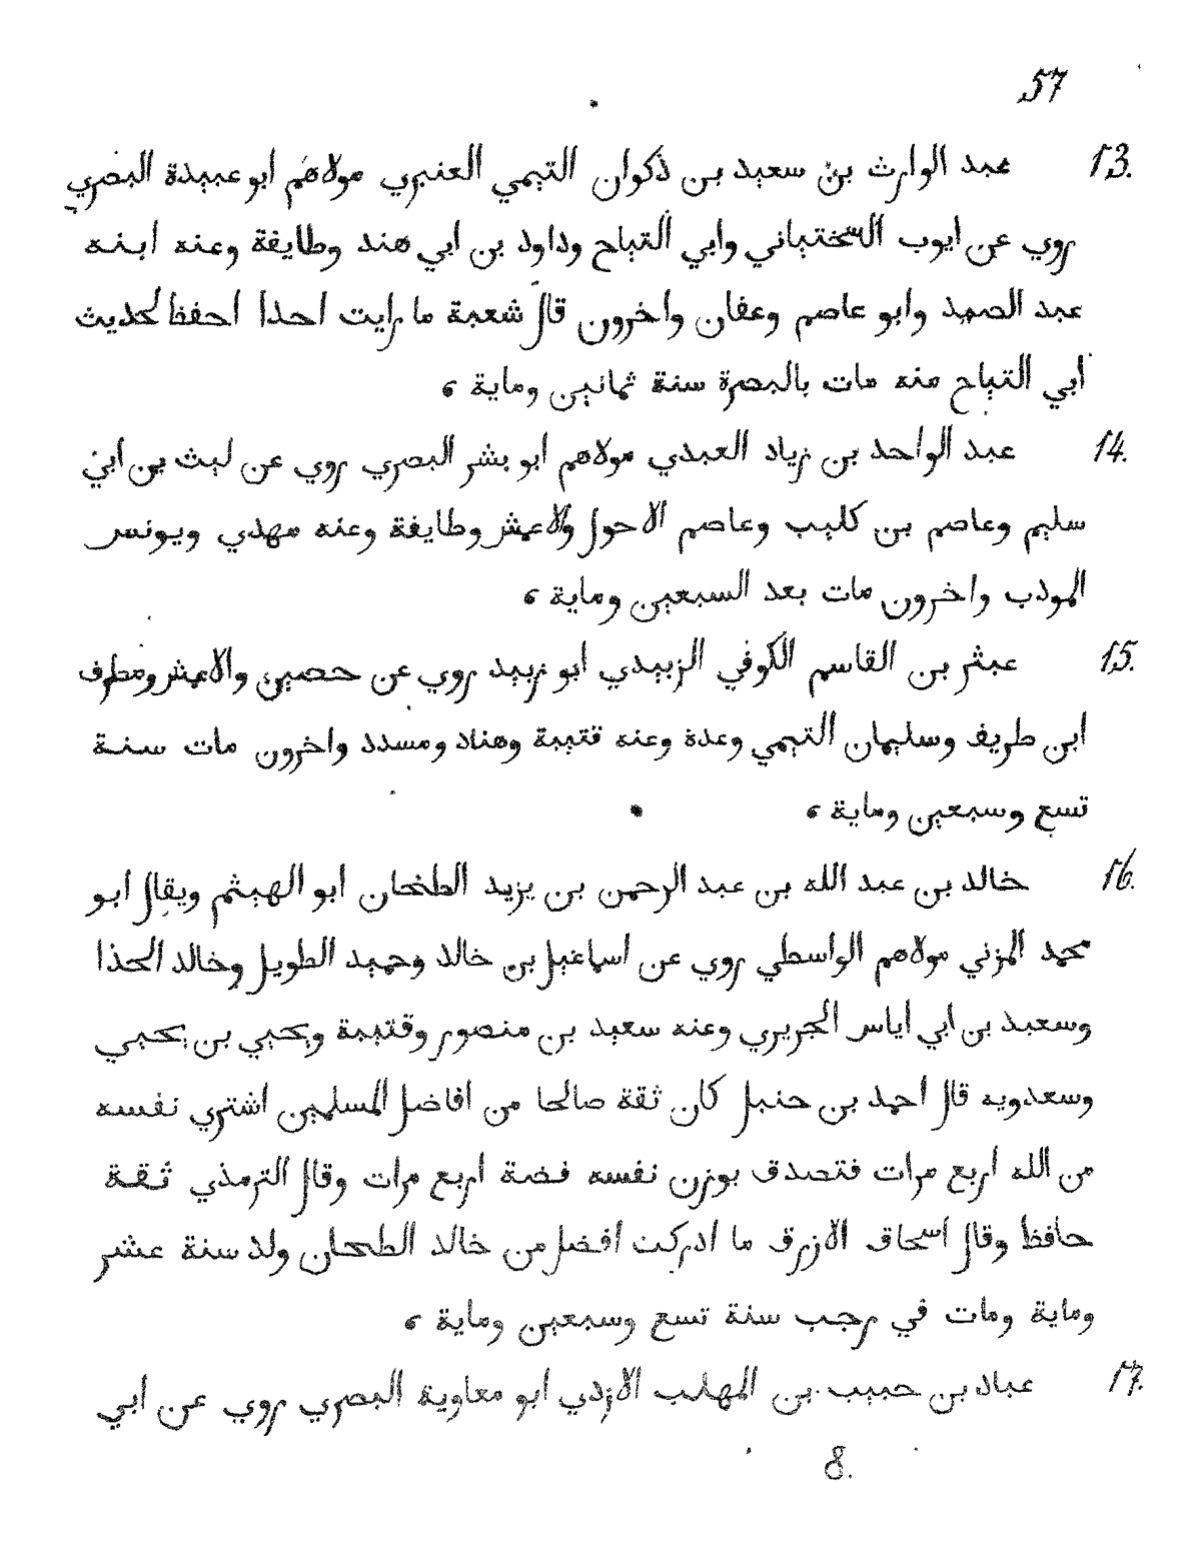 57
13. عبد الوارث بن سعيد بن ذكوان التيمي العنبري مولاهم ابو عبيدة البصري
روي عن ايوب السختياني وابي التياح وداود بن ابي هند وطايفة وعنه ابنه
عبد الصمد وابو عاصم وعفان واخرون قال شعبة ما رايت احدا احفظ لحديث
ابي التياح منه مات بالبصرة سنة ثمانين وماية ،
14. عبد الواحد بن زياد العبدي مولاهم ابو بشر البصري روي عن ليث بن ابي
سليم وعاصم بن كليب وعاصم الاحول والاعمش وطايفة وعنه مهدي ويونس
المودب واخرون مات بعد السبعين وماية ،
15. عبثر بن القاسم الكوفي الزبيدي ابو زبيد روي عن حصين والاعمش ومطرف
ابن طريف وسليمان التيمي وعدة وعنه قتيبة وهناد ومسدد واخرون مات سنة
تسع وسبعين وماية ،
16. خالد بن عبد الله بن عبد الرحمن بن يزيد الطحان ابو الهيثم ويقال ابو
محمد المزني مولاهم الواسطي روي عن اسماعيل بن خالد وحميد الطويل وخالد الحذا
وسعيد بن ابي اياس الجريري وعنه سعيد بن منصور وقتيبة ويحيي بن يحيي
وسعدويه قال احمد بن حنبل كان ثقة صالحا من افاضل المسلمين اشتري نفسه
من الله اربع مرات فتصدق بوزن نفسه فضة اربع مرات وقال الترمذي ثقة
حافظ وقال اسحاق الازرق ما ادركت افضل من خالد الطحان ولد سنة عشر
وماية ومات في رجب سنة تسع وسبعين وماية ،
17. عباد بن حبيب بن المهلب الازدي ابو معاوية البصري روي عن ابي
8.